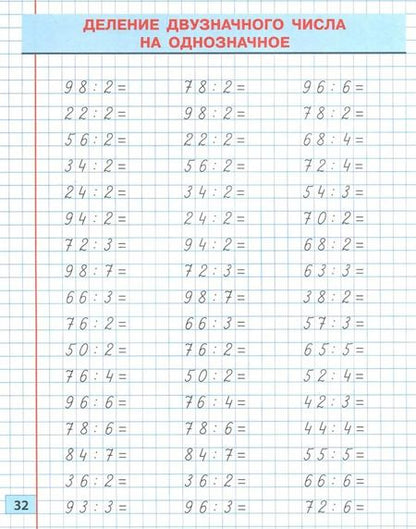 ДЕЛЕНИЕ ДВУЗНАЧНОГО ЧИСЛА
НА ОДНОЗНАЧНОЕ
98:2= 78:2= 96:6=
22:2= 98:2= 78:2=
56:2= 22:2= 68:4=
34:2= 56:2= 72:4=
24:2= 34:2= 54:3=
94:2= 24:2= 70:2=
72:3= 94:2= 68:2=
98:7= 72:3= 63:3=
66:3= 98:7= 38:2=
76:2= 66:3= 57:3=
50:2= 76:2= 65:5=
76:4= 50:2= 52:4=
96:6= 76:4= 42:3=
78:6= 78:6= 44:4=
84:7= 84:7= 55:5=
36:2= 36:2= 66:6=
93:3= 96:3= 72:6=
32